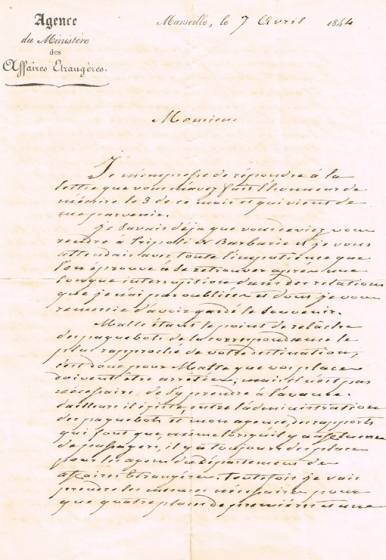 Agence
du Ministère
des
Affaires Etrangères.
Marseille, le 7 Avril 1844
Monsieur
Je m'empresse de répondre à la
lettre que vous m'avez fait l'honneur de
m'écrire le 3 de ce mois et qui vient de
me parvenir.
Je savais déjà que vous deviez vous
rendre à Tripoli de Barbarie et je vous
attendais avec toute l'impatience que
l'on éprouve à se retrouver après une
longue interruption dans des relations
que je n'ai pas oubliées et dont je vous
remercie d'avoir gardé le souvenir.
Malte étant le point de relâche
des paquebots de la correspondance le
plus rapproché de votre destination,
c'est donc pour Malte que vos places
doivent être arrêtées, mais il n'est pas
nécessaire de les prendre à l'avance.
D'ailleurs il existe, entre l'administration
des paquebots et mon agence, des rapports
qui font que, même lorsqu'il y a affluence
de passagers, il y a toujours des places
pour les agens du département des
affaires étrangères. toutefois je vais
prendre les mesures nécessaires pour
que quatre places de premières et une